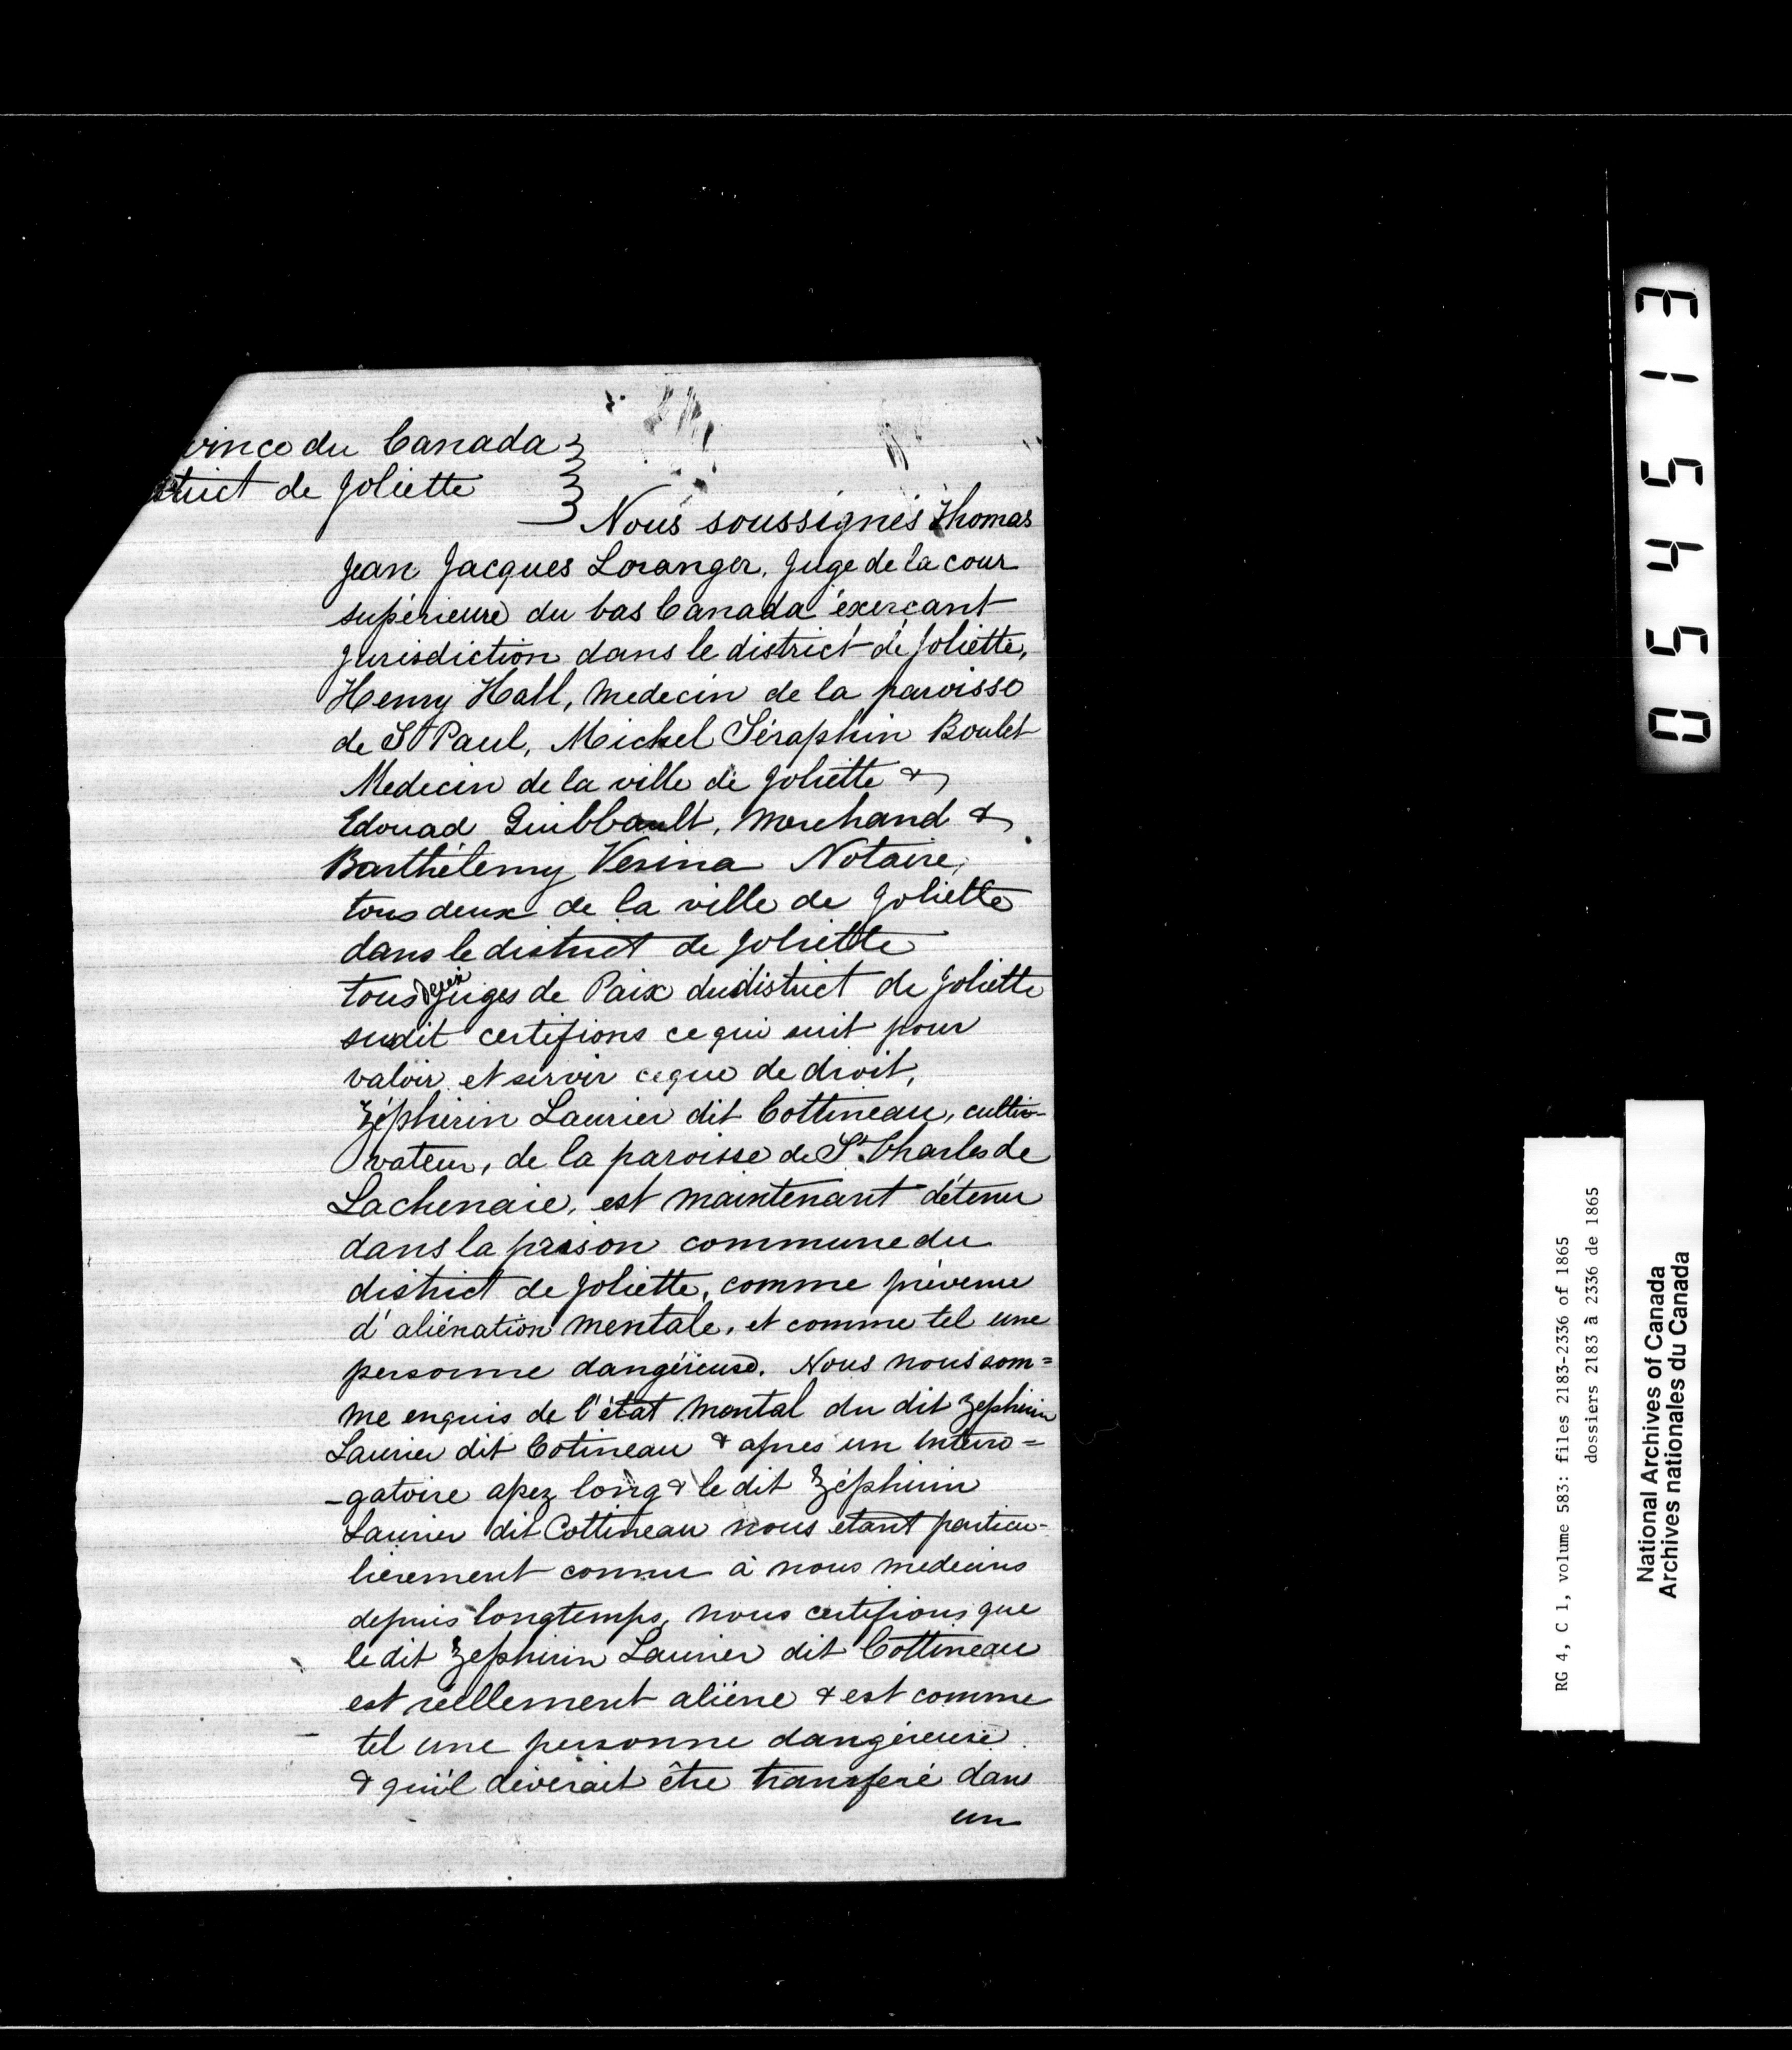 vince du Canada
strict de Joliette
Nous soussignés Thomas
Jean Jacques Loranger, Juge de la cour
supérieure du bas Canada éxerçant
Jurisdiction dans le district de Joliette,
Henry Hall, medecin de la paroisse
de St Paul, Michel Séraphin Boulet
Medecin de la ville de Joliette &
Edouad Guibbault, marchand &
Barthélemy Vesina Notaire,
tous deux de la ville de Joliette
dans le district de Joliette
tous deux Juges de Paix du district de Joliette
susdit certifions ce qui suit pour
valoir et servir ce que de droit,
Zéphirin Laurier dit Cottineau, culti-
vateur, de la paroisse de St. Charles de
Lachenaie, est maintenant détenu
dans la prison commune du
district de Joliette, comme prévenu
d'aliénation mentale, et comme tel une
personne dangéreuse. Nous nous som=
me enquis de l'état mental du dit Zephirin
Laurier dit Cotineau & apres un intero=
-gatoire apez long & le dit Zéphirin
Laurier dit Cottineau nous etant particu-
lierement connu à nous medecins
depuis longtemps, nous certifions que
le dit Zephirin Laurier dit Cottineau
est réellement aliéne & est comme
tel une personne dangéreuse
& qu'il déverait être transferé dans
un
05451 3
RG 4, C 1, volume 583: files 2183-2336 of 1865
dossiers 2183 à 2336 de 1865
National Archives of Canada
Archives nationales du Canada